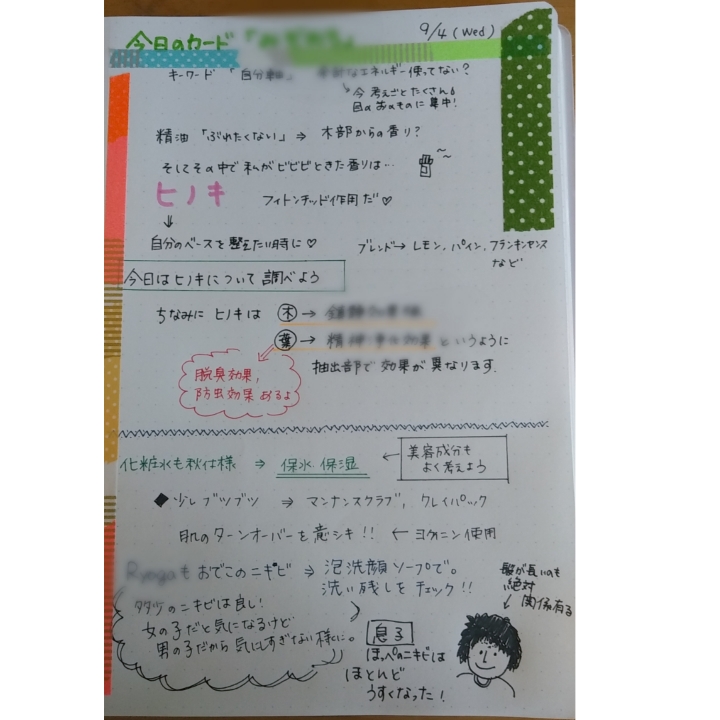 9/4 (Wed)
今日のカード「
キーワード 「自分軸」 エネルギー使ってない?
今考えごとたくさん
目の前のものに集中!
精油 「ぶれたくない」 ⇒ 木部からの香り?
そしてその中で私がビビビときた香りは…
ヒノキ フィトンチッド作用だ♡
⇓
自分のベースを整えたい時に♡ ブレンド→ レモン, パイン, フランキンセンス
など
今日はヒノキについて調べよう
ちなみに ヒノキは 木 →
葉 → というように
抽出部で効果が異なります.
脱臭効果,
防虫効果あるよ
化粧水も秋仕様 ⇒ 保水 保湿 ← 美容成分も
よく考えよう
◆少しブツブツ ⇒ マンナンスクラブ, クレイパック
肌のターンオーバーを意シキ!! ← ヨクイニン使用
Ryogaもおでこのニキビ ⇒ 泡洗顔ソープで。
洗い残しをチェック!!
髪が長いのも
絶対
関係有る
のニキビは良し!
女の子だと気になるけど
男の子だから気にしすぎない様に。
息子
ほっぺのニキビは
ほとんど
うすくなった!